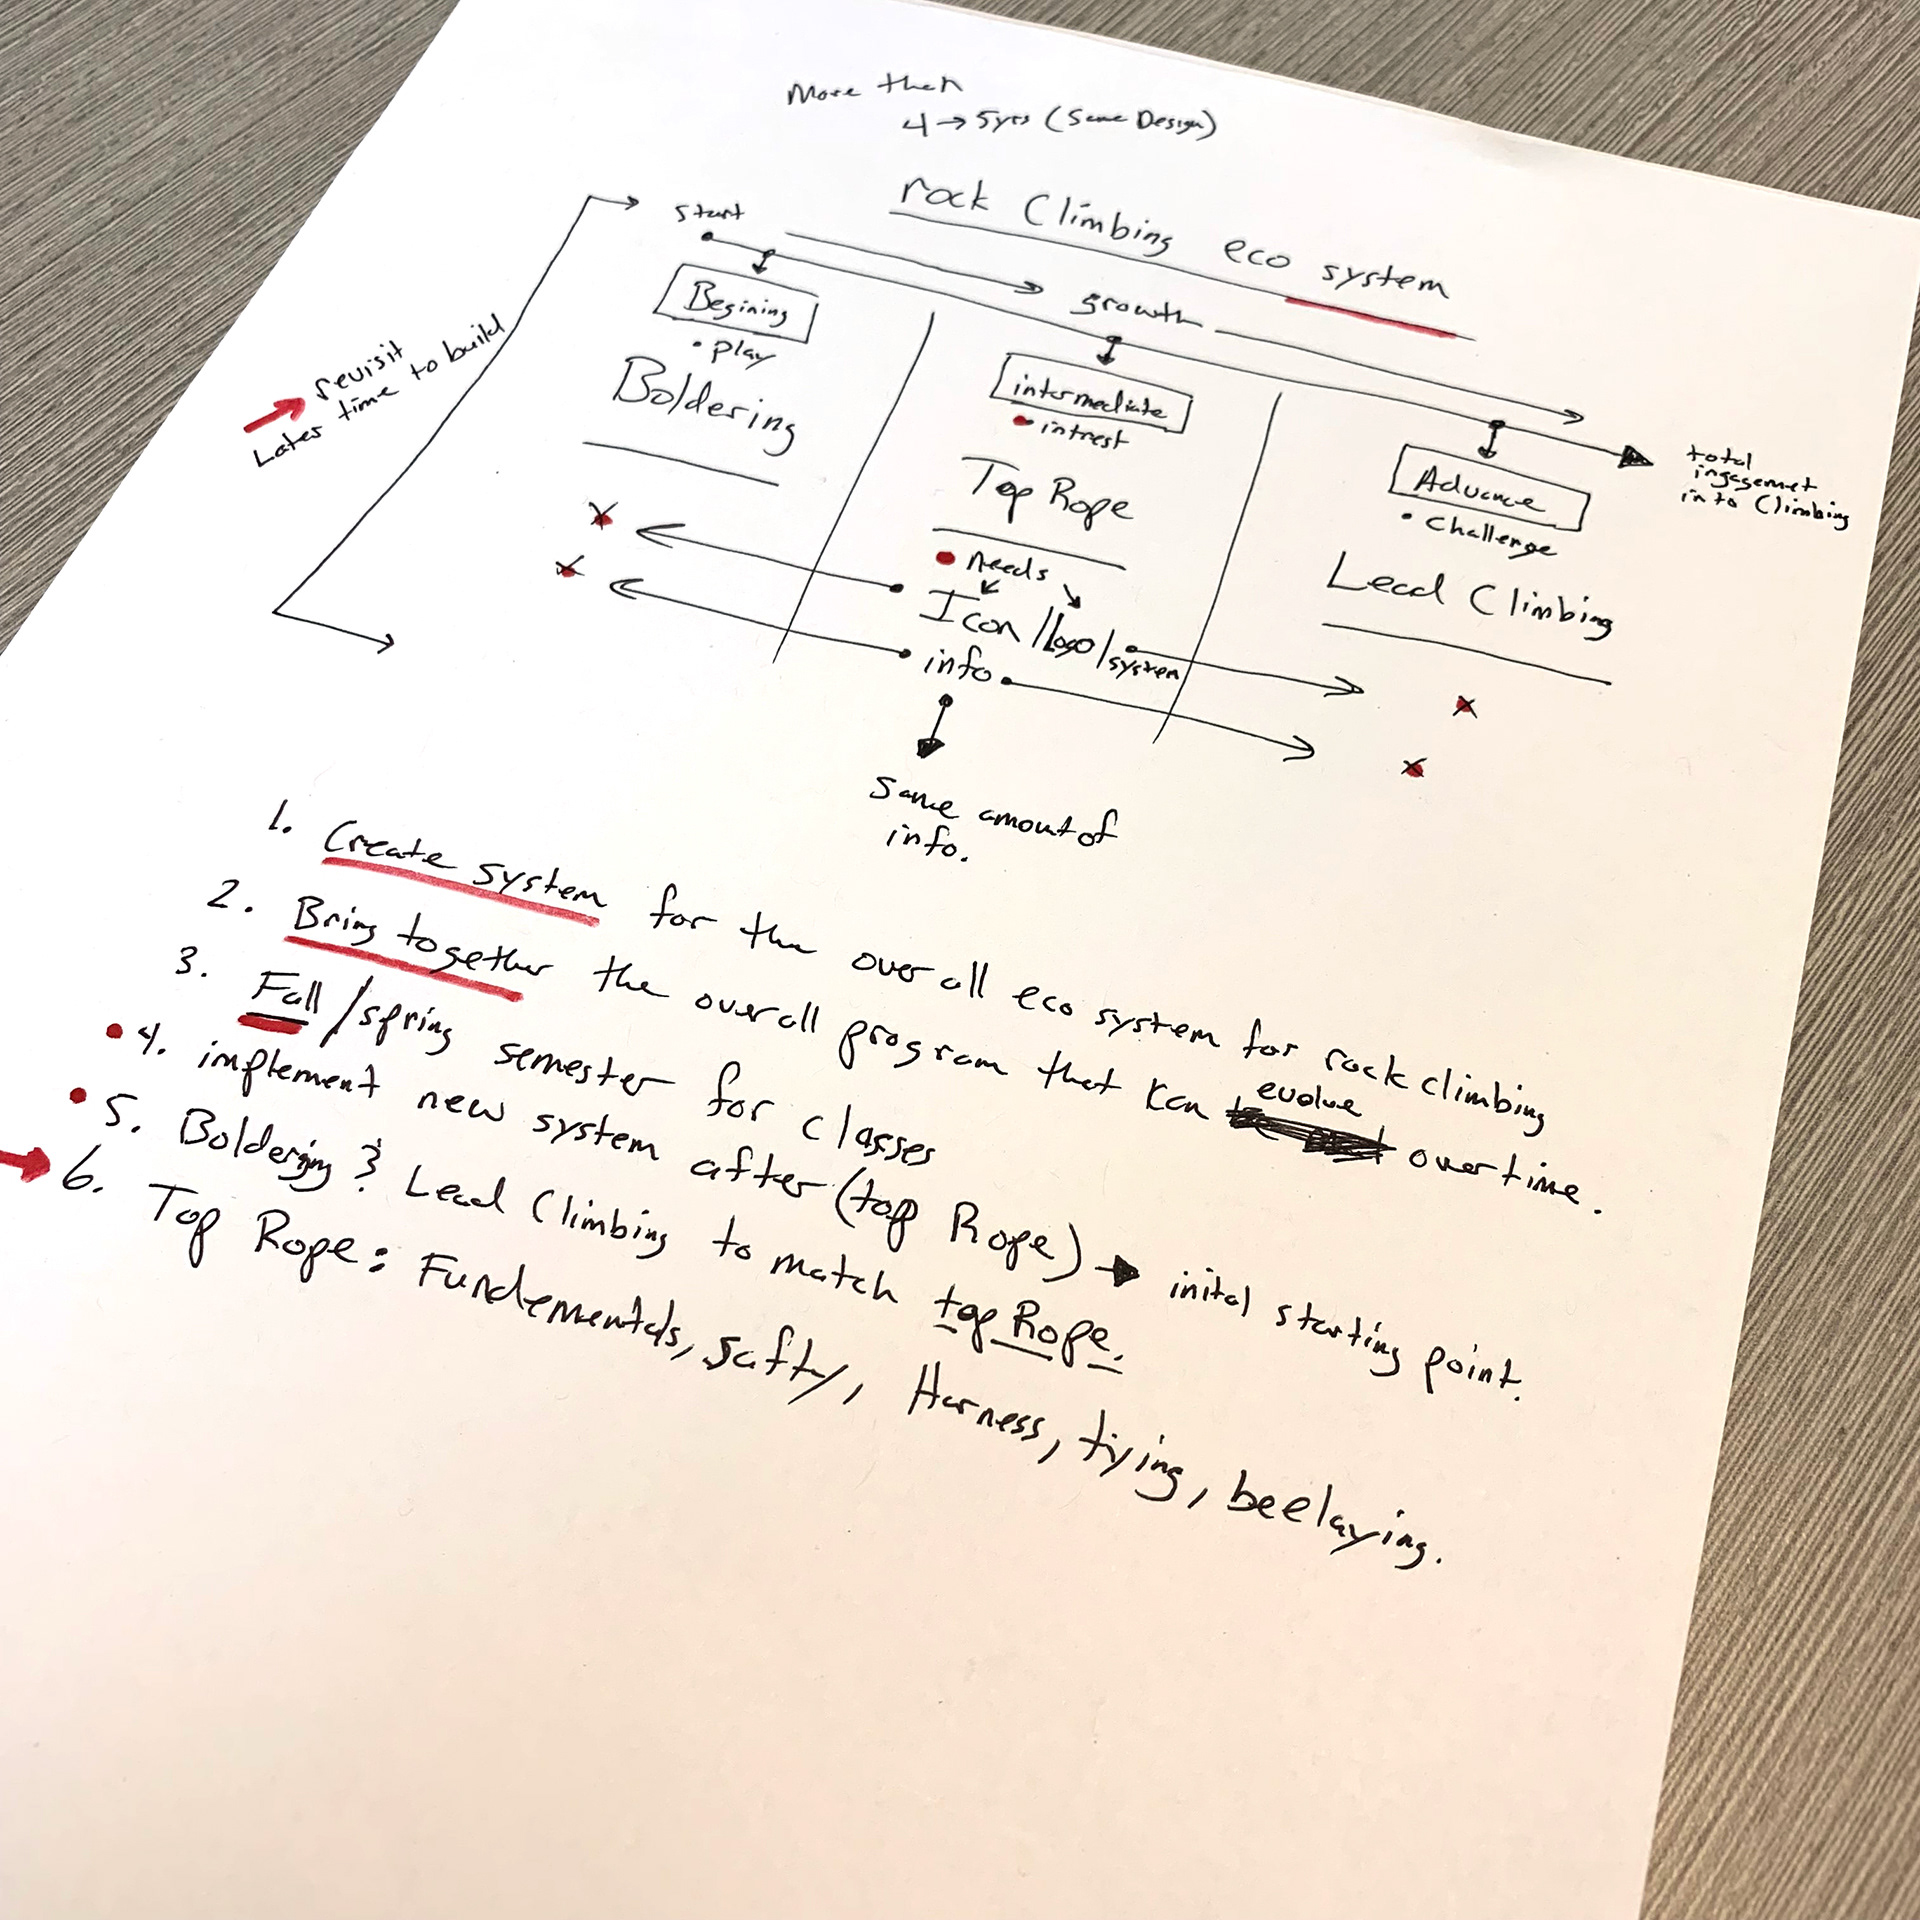 More then
4 → 5yrs (Same Design)
rock Climbing eco system
start
growth
Begining
• play
Boldering
intermediate
• intrest
Top Rope
Advance
• Challenge
Lead Climbing
total
ingagemet
into Climbing
revisit
Later time to build
• needs
Icon / logo / system
info
Same amount of
info.
1. Create system for the over all eco system for rock climbing
2. Bring together the overall program that Kan evolve over time.
3. Fall / spring semester for classes
• 4. implement new system after (top Rope) → inital starting point.
• 5. Boldering & Lead Climbing to match top Rope.
6. Top Rope: Fundementals, safty, Harness, tying, beelaying.